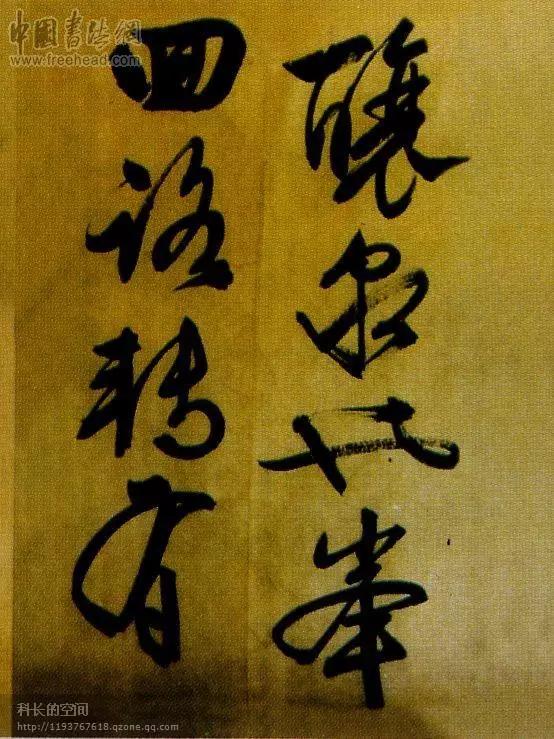 中國書法網
www.freehead.com
釀泉也峯
回路轉有
科长的空间
http://1193767618.qzone.qq.com